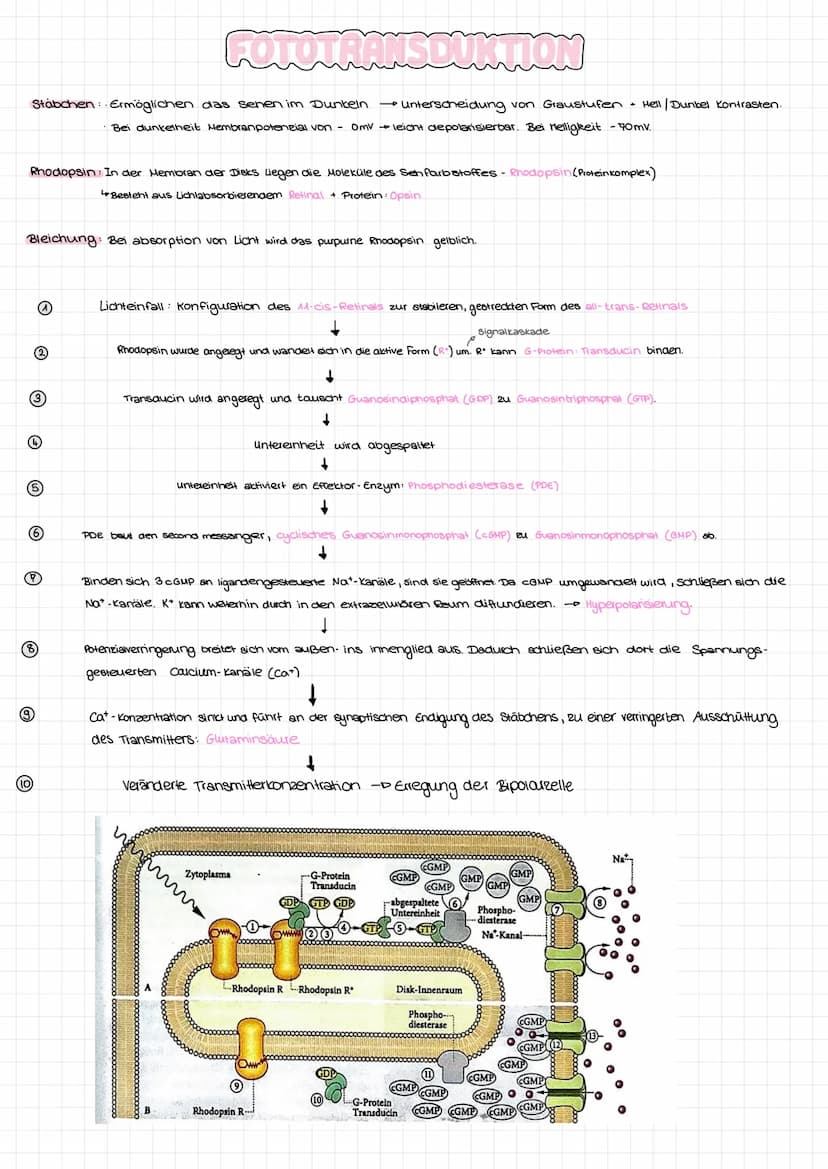 FOTOTRANSDUKTION
Stäbchen: · Ermöglichen das Sehen im Dunkeln → Unterscheidung von Graustufen + Hell/Dunkel Kontrasten.
· Bei Dunkelheit Membranpotenzial von - 0mV → leicht depolarisierbar. Bei Helligkeit -70mV.
Rhodopsin: In der Membran der Disks liegen die Moleküle des Sehfarbstoffes - Rhodopsin (Proteinkomplex)
↳ Besteht aus Lichtabsorbierendem Retinal + Protein: Opsin
Bleichung: Bei absorption von Licht wird das purpurne Rhodopsin gelblich.
① Lichteinfall: Konfiguration des 11-cis-Retinals zur stabileren, gestreckten Form des all-trans-Retinals
↓
Signalkaskade
② Rhodopsin wurde angeregt und wandelt sich in die aktive Form (R*) um. R* kann G-Protein: Transducin binden.
↓
③ Transducin wird angeregt und tauscht Guanosindiphosphat (GDP) zu Guanosintriphosphat (GTP).
↓
④ Untereinheit wird abgespaltet
↓
⑤ Untereinheit aktiviert ein Effektor-Enzym: Phosphodiesterase (PDE)
↓
⑥ PDE baut den second messanger, cyclisches Guanosinmonophosphat (cGMP) zu Guanosinmonophosphat (GMP) ab.
↓
⑦ Binden sich 3 cGMP an ligandengesteuerte Na⁺-Kanäle, sind sie geöffnet. Da cGMP umgewandelt wird, schließen sich die
Na⁺-Kanäle. K⁺ kann weiterhin durch in den extrazellulären Raum difundieren. → Hyperpolarisierung.
↓
⑧ Potenzialverringerung breitet sich vom außen- ins innenglied aus. Dadurch schließen sich dort die Spannungs-
gesteuerten Calcium-Kanäle (Ca⁺)
↓
⑨ Ca⁺-Konzentration sinkt und führt an der synaptischen Endigung des Stäbchens, zu einer verringerten Ausschüttung
des Transmitters: Glutaminsäure
↓
⑩ Veränderte Transmitterkonzentration → Erregung der Bipolarzelle
Zytoplasma
G-Protein
Transducin
cGMP cGMP cGMP GMP GMP GMP GMP
Na⁺
GDP GTP GDP
abgespaltete
Untereinheit
⑥
Phospho-
diesterase
⑦ ⑧
① ② ③ ④ GTP ⑤ GTP
Na⁺-Kanal
A
Rhodopsin R
Rhodopsin R*
Disk-Innenraum
Phospho-
diesterase
cGMP
⑬
cGMP ⑫
cGMP
⑨
GDP
⑪
cGMP cGMP
cGMP cGMP cGMP
⑩
G-Protein
Transducin
B
Rhodopsin R
cGMP cGMP cGMP cGMP